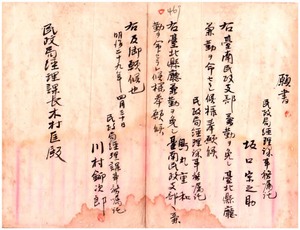 467
願書
民政局經理課事務嘱託
坂口宗之助
右臺南民政支部兼勤ヲ免シ臺北縣廳
兼勤ヲ命セラレ候様奉願候
民政局經理課事務嘱託
右臺北縣廳兼勤ヲ免シ臺南民政支部兼
勤ヲ命セラレ候様奉願候
右及御願候也
明治二十九年四月三十日
民政局經理課事務嘱託
川村鉚次郎
民政局經理課長木村匡殿